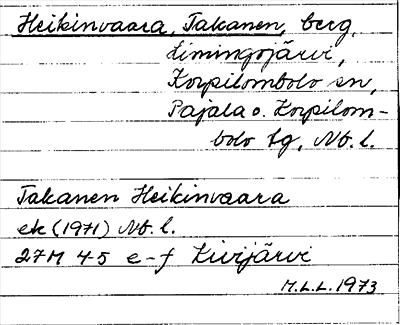 Heikinvaara, Takanen, berg,
Limingojärvi,
Korpilombolo sn,
Pajala o. Korpilom-
bolo tg, Nb. l.
Takanen Heikinvaara
ek (1971) Nb. l.
27M 4-5 e-f Kivijärvi
M.L.L. 1973